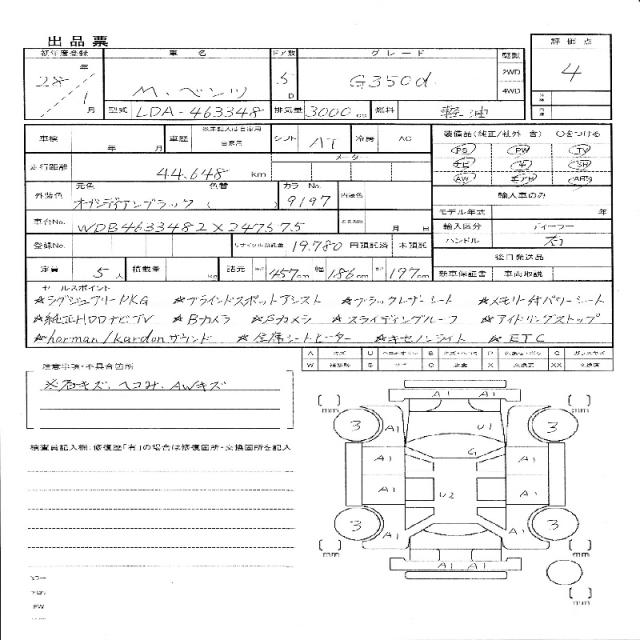 出品票
初年度登録 車名 ドア数 グレード 駆動 評価点
28年 1月 M.ベンツ 5 D G350d 2WD 4WD 4
型式 LDA-463348 排気量 3000cc 燃料 軽油
車検 年 月 車歴 自家用 シフト AT 冷房 AC 装備品(純正/社外 含) ○をつける
走行距離 44,648 km メーター PS PW TV
SR
AW エアB
外装色 元色 オブシディアンブラック 色替 ( ) カラーNo. 9197 内装色 輸入車のみ
モデル年式 年
車台No. WDB4633482X247575 月 日 輸入区分 ディーラー
ハンドル 右
登録No. リサイクル預託金 19,780 円預託済 未預託 後日発送品
定員 5人 積載量 kg 諸元 長さ457cm 幅186cm 高さ197cm 新車保証書 車両取説
セールスポイント
☆ラグジュアリーPKG ☆ブラインドスポットアシスト ☆ブラックレザーシート ☆メモリー付パワーシート
☆純正HDDナビTV ☆Bカメラ ☆Sカメラ ☆スライディングルーフ ☆アイドリングストップ
☆harman/kardonサウンド ☆全席シートヒーター ☆キセノンライト ☆ETC
注意事項・不具合箇所
※石キズ、ヘコみ、AWキズ
検査員記入欄:修復歴「有」の場合は修復箇所・交換箇所を記入
A U B P G
W S C X XX
A1 A1
3 A1 U1 A1 3
G
A1 A1
A1 U2 A1
3 A1 A1 3
mm mm
mm mm mm